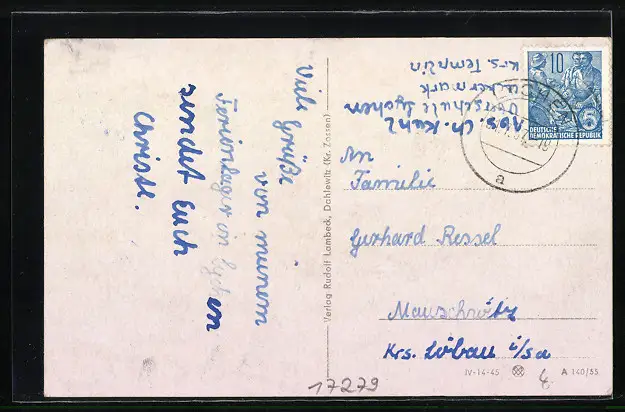 Viele Grüße
von meinem
Ferienlager in Lychen
sendet Euch
Christe.
Verlag Rudolf Lambeck, Dahlewitz (Kr. Zossen)
Abs. Ch. Kuhl
Oberschule Lychen
Uckermark
Krs. Templin
10
DEUTSCHE
DEMOKRATISCHE REPUBLIK
LYCHEN
a
An
Familie
Gerhard Ressel
Mauschwitz
Krs. Löbau i/Sa
IV-14-45
A 140/55
17279